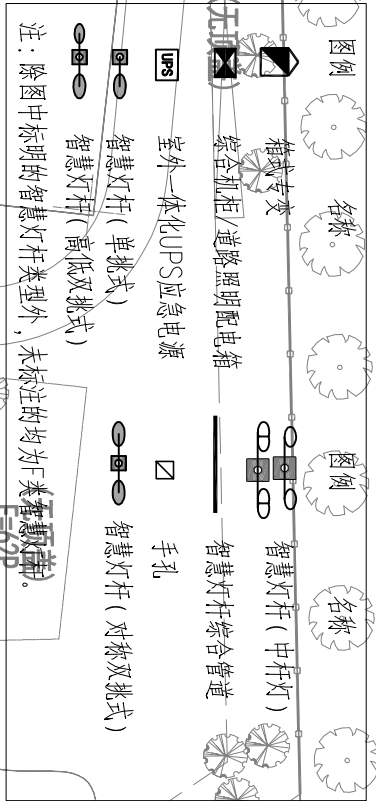 图例 名称 图例 名称
箱式专变 智慧灯杆(中杆灯)
综合机柜/道路照明配电箱 智慧灯杆综合管道
UPS 室外一体化UPS应急电源 手孔
智慧灯杆(单挑式) 智慧灯杆(对称双挑式)
智慧灯杆(高低双挑式)
注:除图中标明的智慧灯杆类型外,未标注的均为F类智慧灯杆。
(无顶盖)
(无顶盖)